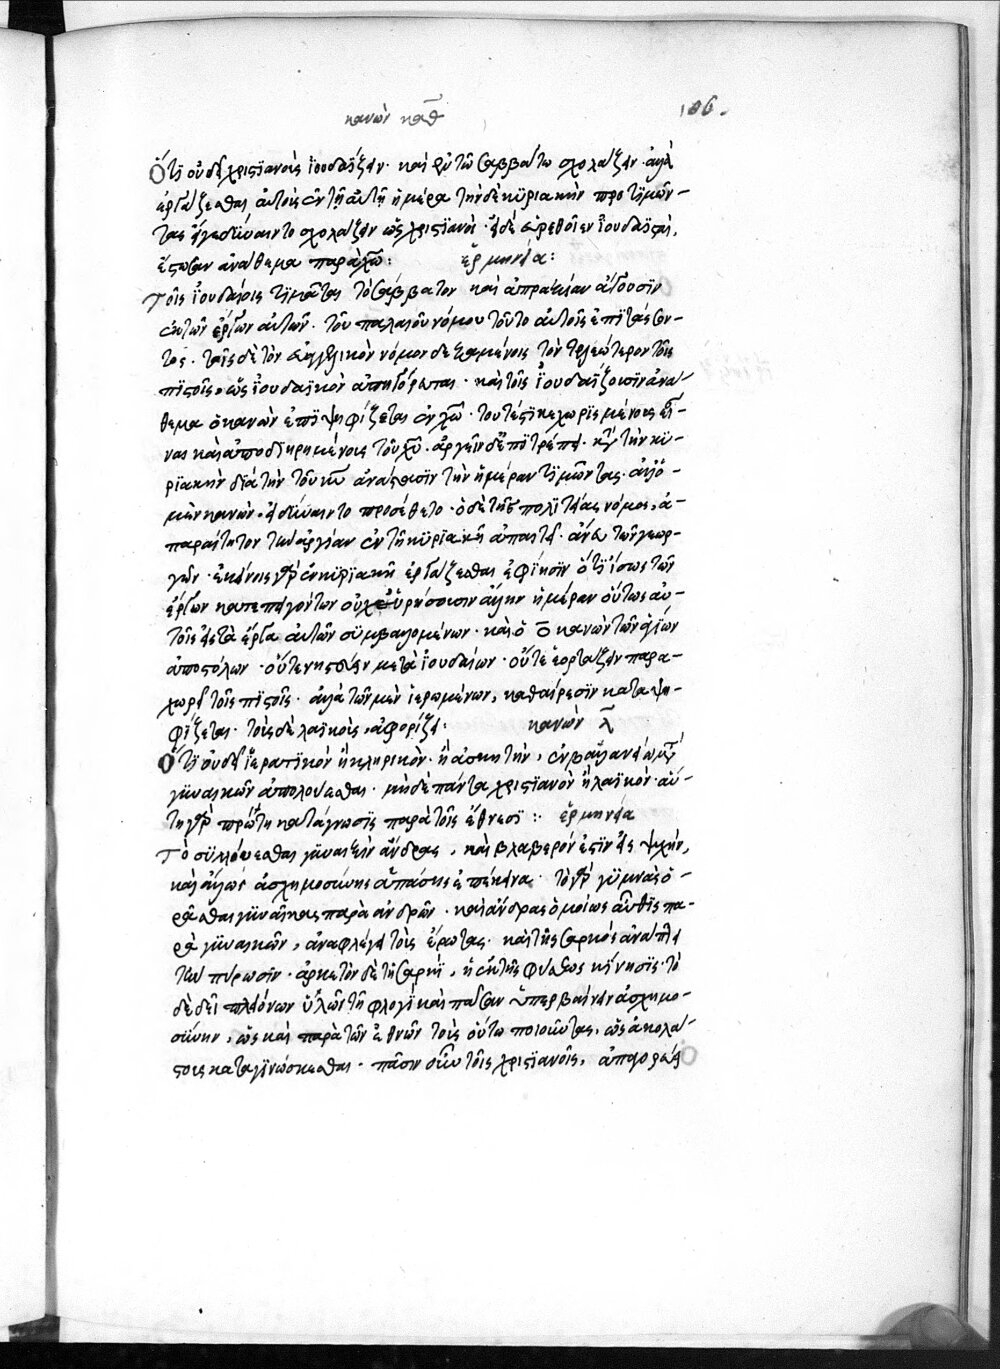 κανὼν κθ 106.
Ὅτι οὐ δεῖ χριστϊανοὺς ἰουδαΐζειν· καὶ ἐν τῷ σαββάτω σχολάζειν· ἀλλὰ
ἐργάζεσθαι αὐτοὺς ἐν τῆ αὐτῆ ἡμέρα τὴν δὲ κυριακὴν προτιμῶν-
τας εἴγε δύναιντο σχολάζειν ὡς χριστϊανοί· εἰ δὲ εὑρεθοῖεν ἰουδαϊσταὶ,
ἔστωσαν ἀνάθεμα παρὰ χῶ: ἑρμηνεία:
Τοῖς ἰουδαίοις τιμᾶται τὸ σάββατον καὶ ἀπραξίαν ἄγουσϊν
ἐκ τῶν ἔργων αὐτῶν· τοῦ παλαιοῦ νόμου τοῦτο αὐτοῖς ἐπιτάσσον-
τος· τοῖς δὲ τὸν εὐαγγελικὸν νόμον δεξαμένοις τὸν τελεώτερον τοῖς
πιστοῖς, ὡς ἰουδαϊκὸν ἀπηγόρευται· καὶ τοῖς ἰουδαΐζουσϊν ἀνά-
θεμα ὁ κανὼν ἐπιψηφίζεται ἐν χῶ· τουτέστι κεχωρισμένους εἶ-
ναι καὶ ἀποδιηρημένους τοῦ χῦ· ἀργεῖν δὲ ἐπιτρέπει κατὰ τὴν κυ-
ριακὴν διὰ τὴν τοῦ κῦ ἀνάστασϊν τὴν ἡμέραν τιμῶντας· ἀλλ' ὁ
μὲν κανὼν, εἰ δύναιντο προσέθετο· ὁ δὲ τῆς πολϊτείας νόμος, ἀ-
παραίτητον τὴν ἀργίαν ἐν τῆ κυριακῆ ἀπαιτεῖ· ἄνευ τῶν γεωρ-
γῶν· ἐκείνοις γὰρ ἐν κυριακῆ ἐργάζεσθαι ἐφίησϊν ὅτι ἴσως τῶν
ἔργων κατεπειγόντων οὐχ εὑρήσουσιν ἄλλην ἡμέραν οὕτως αὐ-
τοῖς εἰς τὰ ἔργα αὐτῶν συμβαλλομένην· καὶ ὁ ο κανὼν τῶν ἁγίων
ἀποστόλων· οὔτε νηστεύειν μετὰ ἰουδαίων· οὔτε ἑορτάζειν παρα-
χωρεῖ τοῖς πιστοῖς· ἀλλὰ τῶν μὲν ἱερωμένων, καθαίρεσϊν καταψη-
φίζεται· τοὺς δὲ λαϊκοὺς, ἀφορίζει: κανὼν λ
Ὅτι οὐ δεῖ ἱερατικὸν ἢ κληρικὸν· ἢ ἀσκητὴν, ἐν βαλανείω μετὰ
γυναικῶν ἀπολούεσθαι· μηδὲ πάντα χριστϊανὸν ἢ λαϊκὸν· αὕ-
τη γὰρ πρώτη κατάγνωσις παρὰ τοῖς ἔθνεσϊ :· ἑρμηνεία
Τὸ συλλούεσθαι γυναιξὶν ἄνδρας, καὶ βλαβερόν ἐστϊν εἰς ψυχὴν,
καὶ ἄλλως ἀσχημοσύνης ἁπάσης ἐπέκεινα· τὸ γὰρ γυμνὰς ὁ-
ρᾶσθαι γυναῖκας παρὰ ἀνδρῶν· καὶ ἄνδρας ὁμοίως αὖθϊς πα-
ρὰ γυναικῶν, ἀναφλέγει τοὺς ἔρωτας· καὶ τῆς σαρκὸς ἀνάπτει
τὴν πύρωσϊν· ἀρκετὸν δὲ τῆ σαρκὶ, ἡ ἐκ τῆς φύσεως κίνησϊς· τὸ
δὲ δεῖ πλειόνων ὑλῶν τῆ φλογὶ καὶ πᾶσαν ὑπερβαίνειν ἀσχημο-
σύνην, ὡς καὶ παρὰ τῶν ἐθνῶν τοὺς οὕτω ποιοῦντας, ὡς ἀκολά-
στους καταγινώσκεσθαι· πᾶσιν οὖν τοῖς χριστϊανοῖς, ἀπαγορεύει